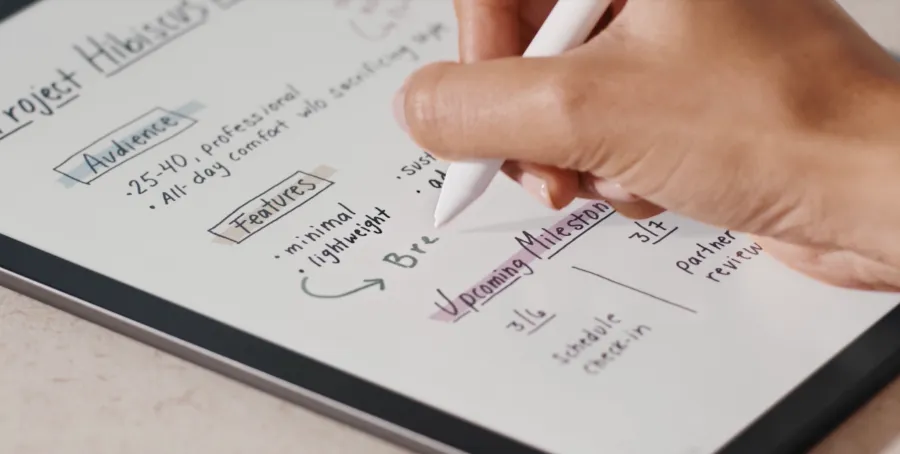 Project Hibiscus
Audience
• 25-40, professional
• All-day comfort w/o sacrificing style
Features
• minimal
• lightweight
Bre
Upcoming
3/6
Schedule
check-in
3/7
partner
review